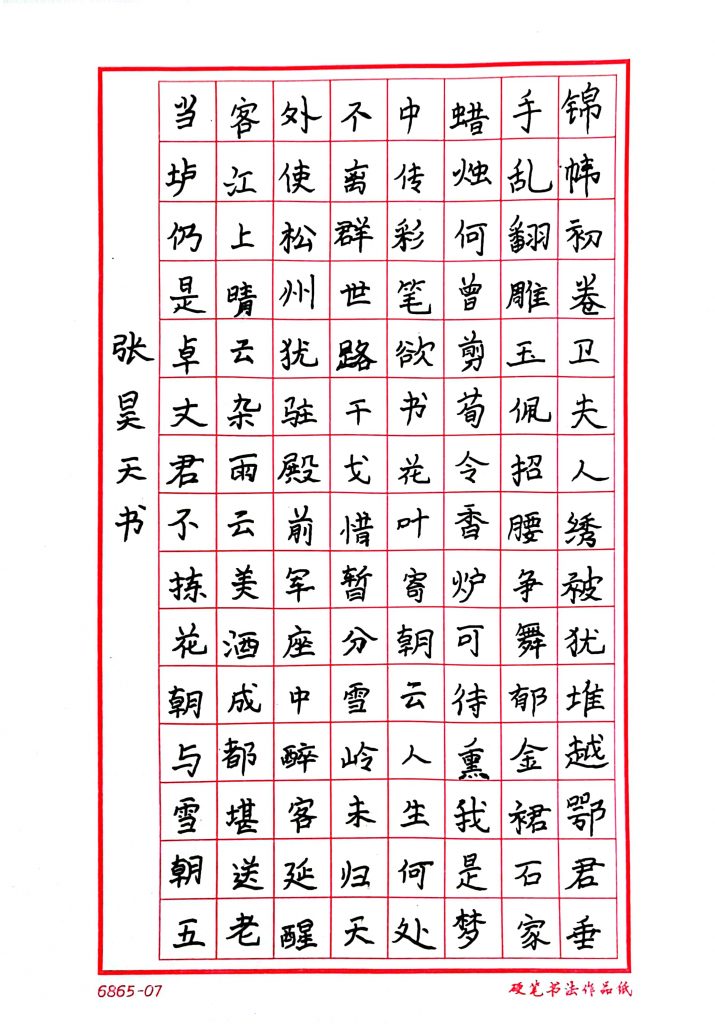 锦帏初卷卫夫人绣被犹堆越鄂君垂
手乱翻雕玉佩招腰争舞郁金裙石家
蜡烛何曾剪荀令香炉可待熏我是梦
中传彩笔欲书花叶寄朝云人生何处
不离群世路干戈惜暂分雪岭未归天
外使松州犹驻殿前军座中醉客延醒
客江上晴云杂雨云美酒成都堪送老
当垆仍是卓文君不拣花朝与雪朝五
张昊天书
6865-07
硬笔书法作品纸